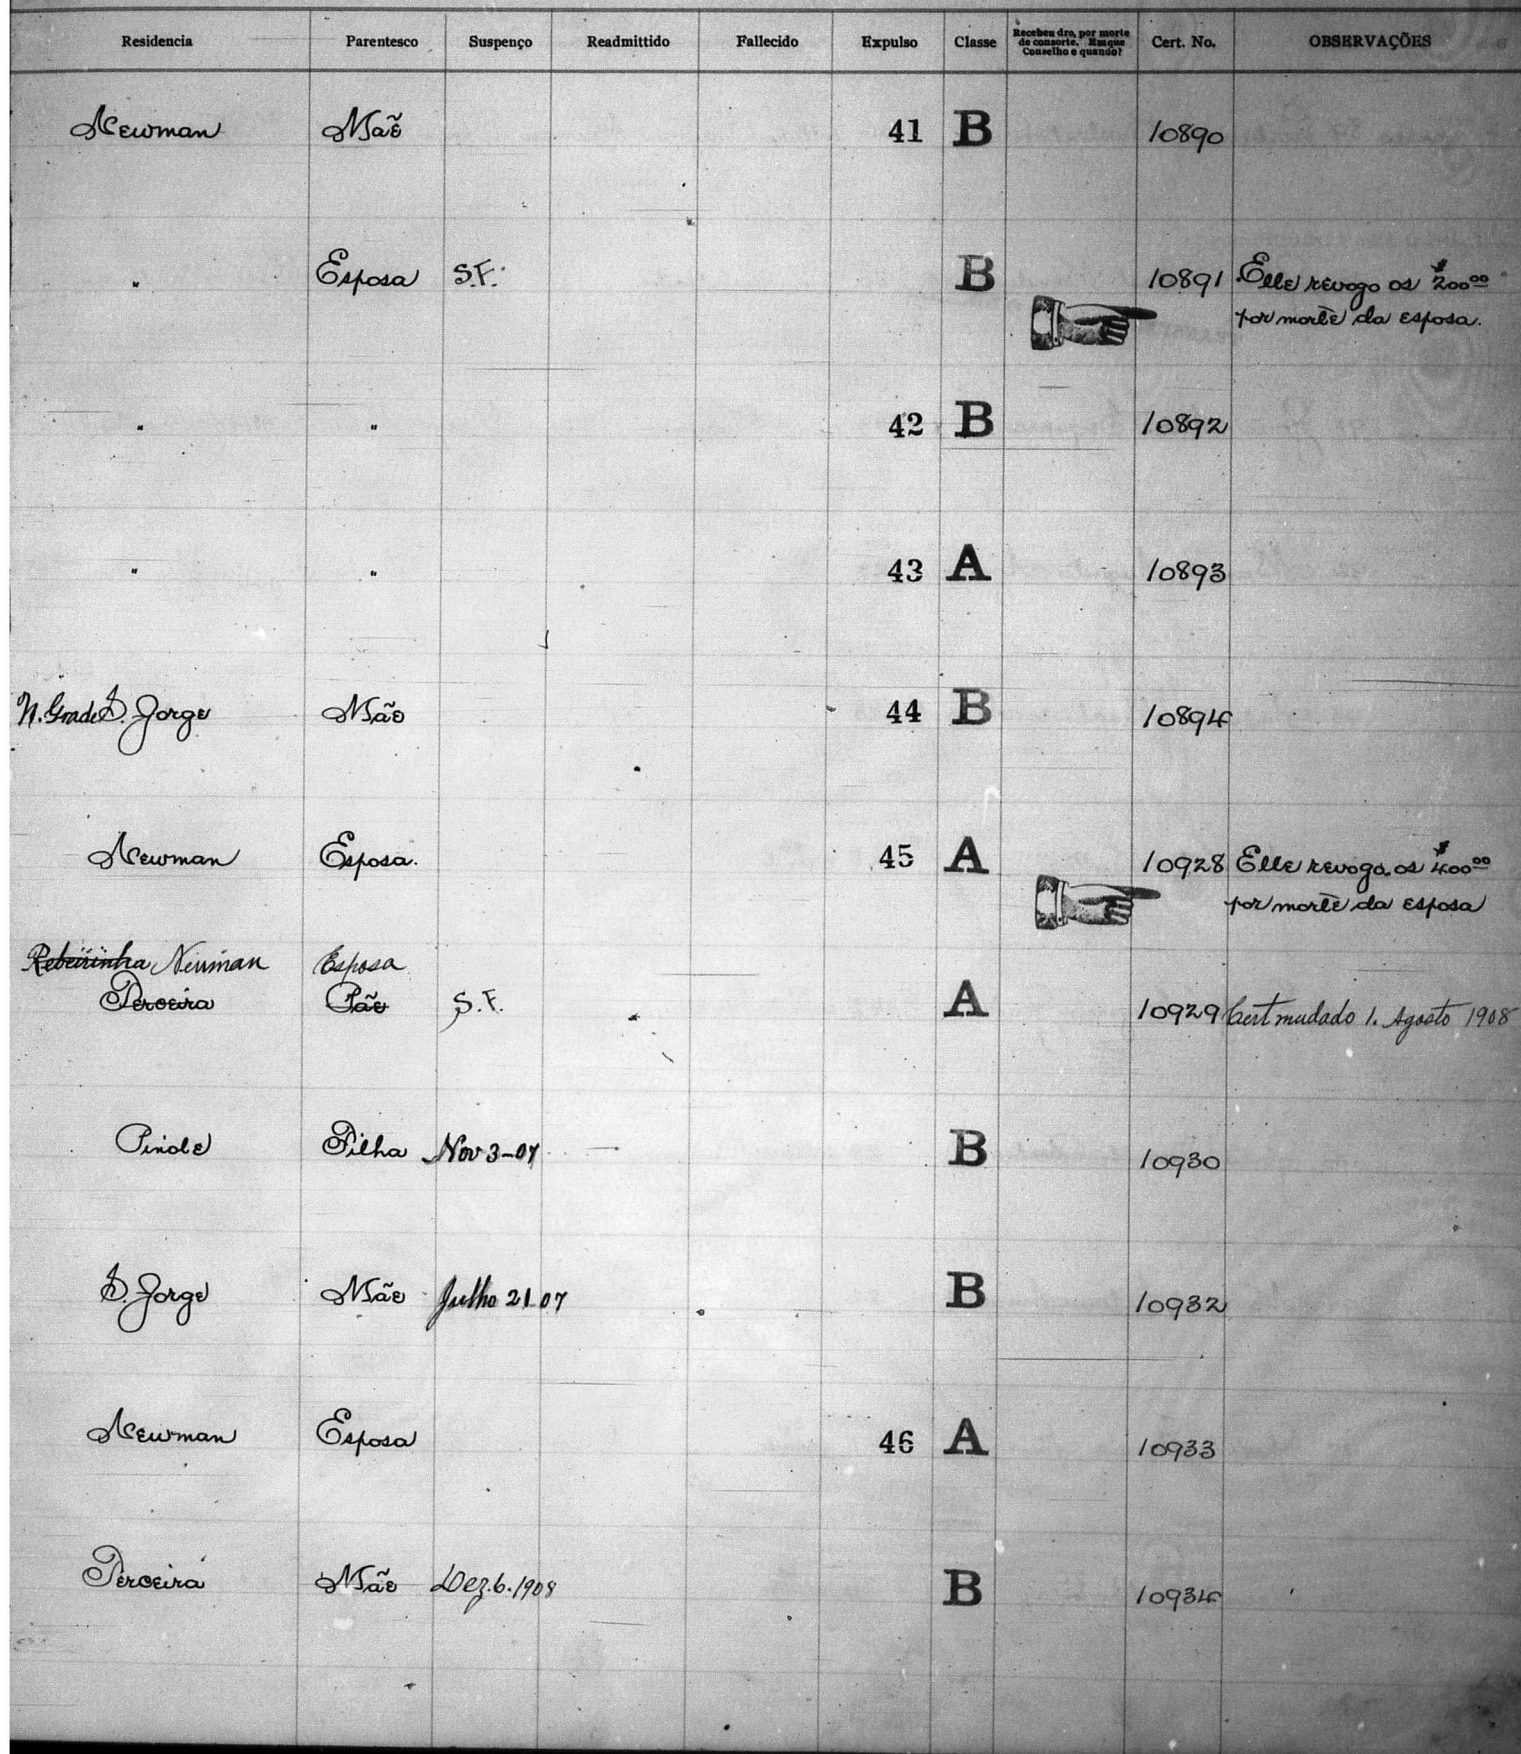 Residencia Parentesco Suspenço Readmittido Fallecido Expulso Classe Recebeu dro, por morte de consorte. Em que Conselho e quando? Cert. No. OBSERVAÇÕES
Newman Mãe 41 B 10890
" Esposa S.F. B 10891 Elle revogo os $200.00
por morte da esposa.
" " 42 B 10892
" " 43 A 10893
N. Grade S. Jorge Mão 44 B 10894
Newman Esposa. 45 A 10928 Elle revogo os $400.00
por morte da esposa
Rebeirinha Newman Esposa
Terceira Pãe S.F. A 10929 Cert mudado 1. Agosto 1908
Pinole Filha Nov 3-07 B 10930
S. Jorge Mãe Julho 21 07 B 10932
Newman Esposa 46 A 10933
Terceira Mãe Dez. 6. 1908 B 10934